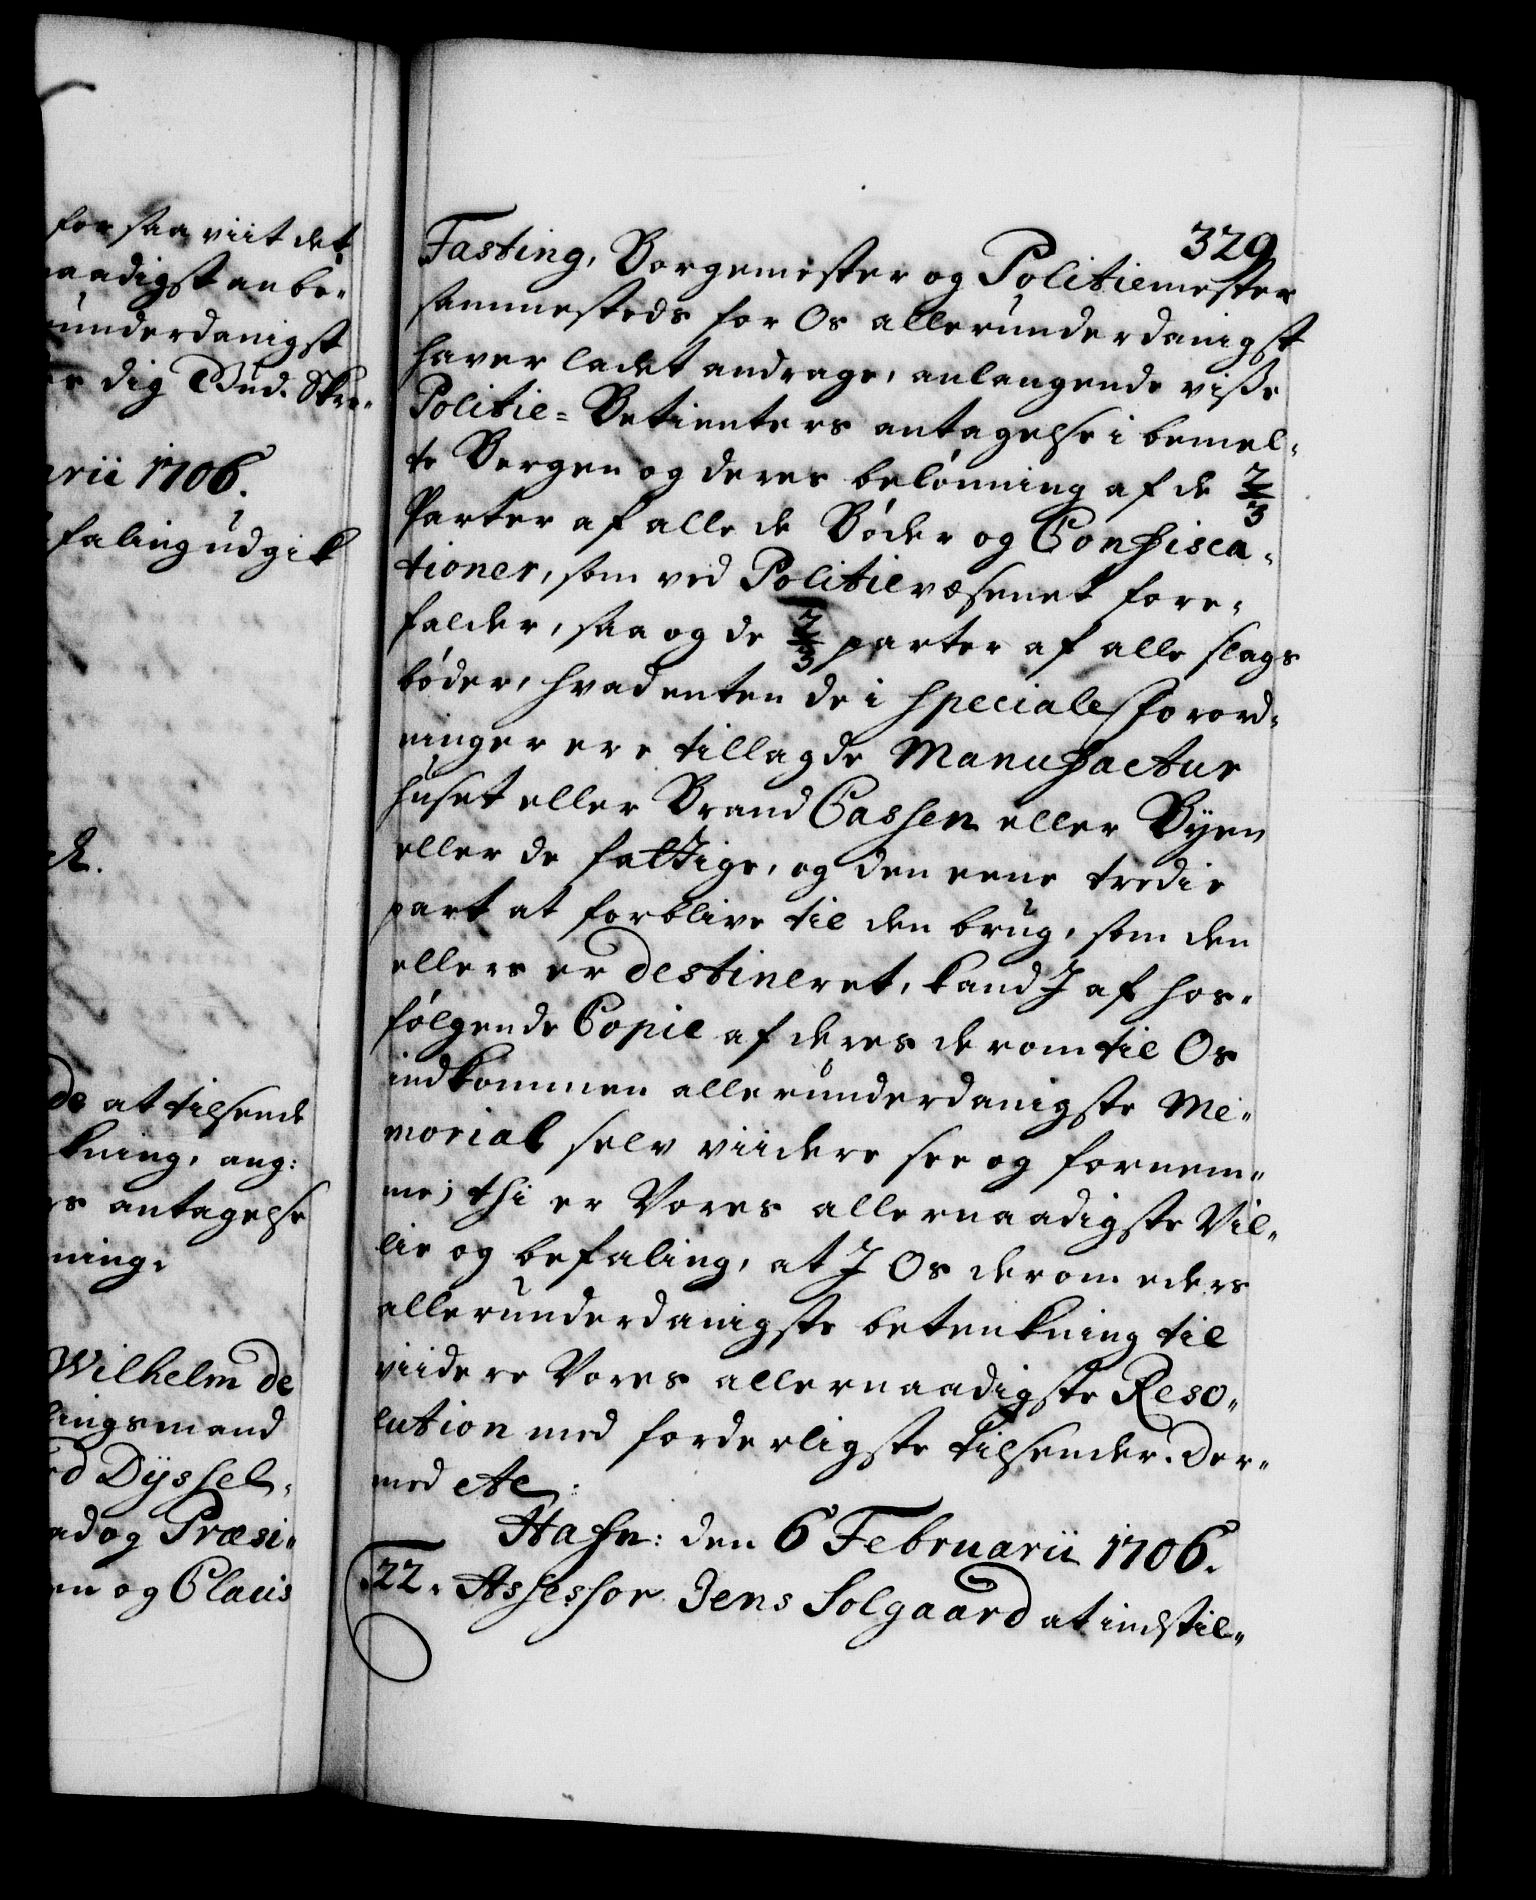 for saa viit det
naadigst anbe-
underdanigst
dig Gud. Skre-
arii 1706.
faling udgik
de at tilsende
kning, ang:
antagelse
ning.
Wilhelm de
lingsmand
Dÿssel-
ad og Præsi-
en og Claus
329
Fasting, Borgemester og Politiemester
sammesteds for Os allerunderdanigst
haver ladet andrage, anlangende visse
Politie-Betienters antagelse i bemel-
te Bergen og deres belönning af de 2/3
Parter af alle de Böder og Confisca-
tioner, som ved Politievæsenet fore-
falder, saa og de 2/3 parter af alle slags
böder, hvadenten de i speciale forord-
ninger ere tillagde Manufactur
huset eller Brand Cassen eller Byen
eller de fattige, og den eene tredie
part at forblive til den brug, som den
ellers er destineret, kand I af hos-
fölgende Copie af deres derom til Os
indkommen allerunderdanigste Me-
morial selv viidere see og fornem-
me; thi er Vores allernaadigste Vil-
lie og befaling, at I Os derom eders
allerunderdanigste betenkning til
viidere Vores allernaadigste Reso-
lution med forderligste tilsender. Der-
med etc:
Hafn: den 6 Februarii 1706.
22. Assessor Jens Solgaard at indstil-